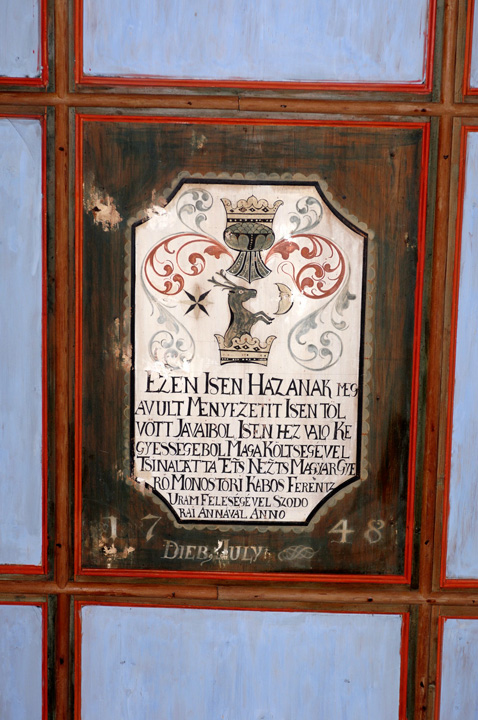 EZEN ISEN HAZANAK MEG
AVULT MENYEZETIT ISEN TOL
VÖTT JAVAIBOL ISEN HEZ VALO KE
GYESSEGEBOL MAGA KÖLTSEGEVEL
TSINALATTA ETS NEZTS MAGYAR GYE
RÖ MONOSTORI KABOS FERENTZ
URAM FELESEGEVEL SZODO
RAI ANNAVAL ANNO
1748
DIEB. JULY